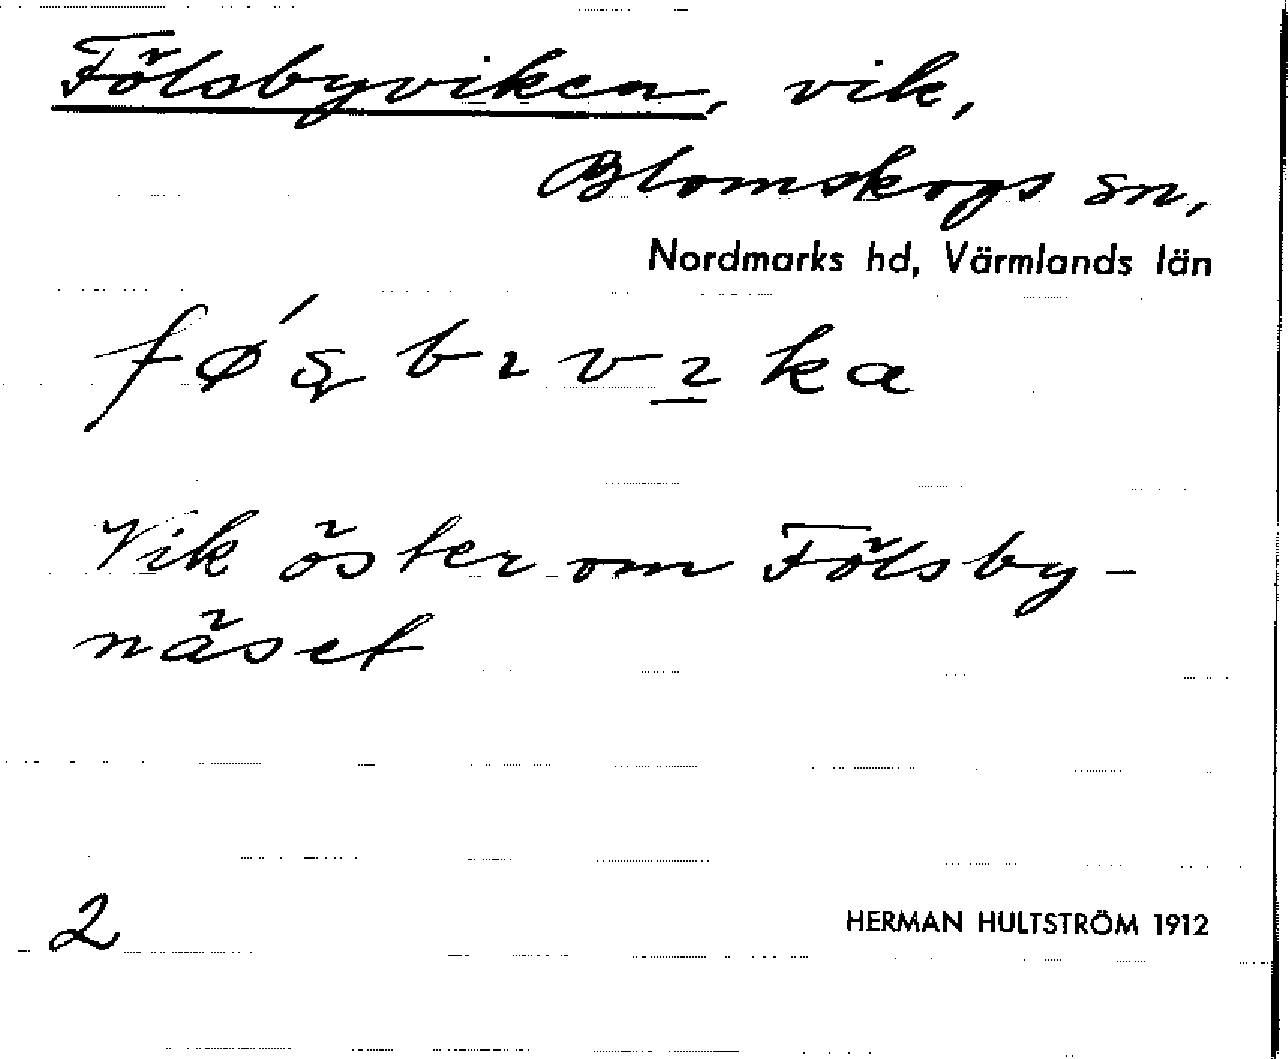 Fölsbyviken, vik,
Blomskogs sn,
Nordmarks hd, Värmlands län
Vik öster om Fölsby-
näset
2
HERMAN HULTSTRÖM 1912